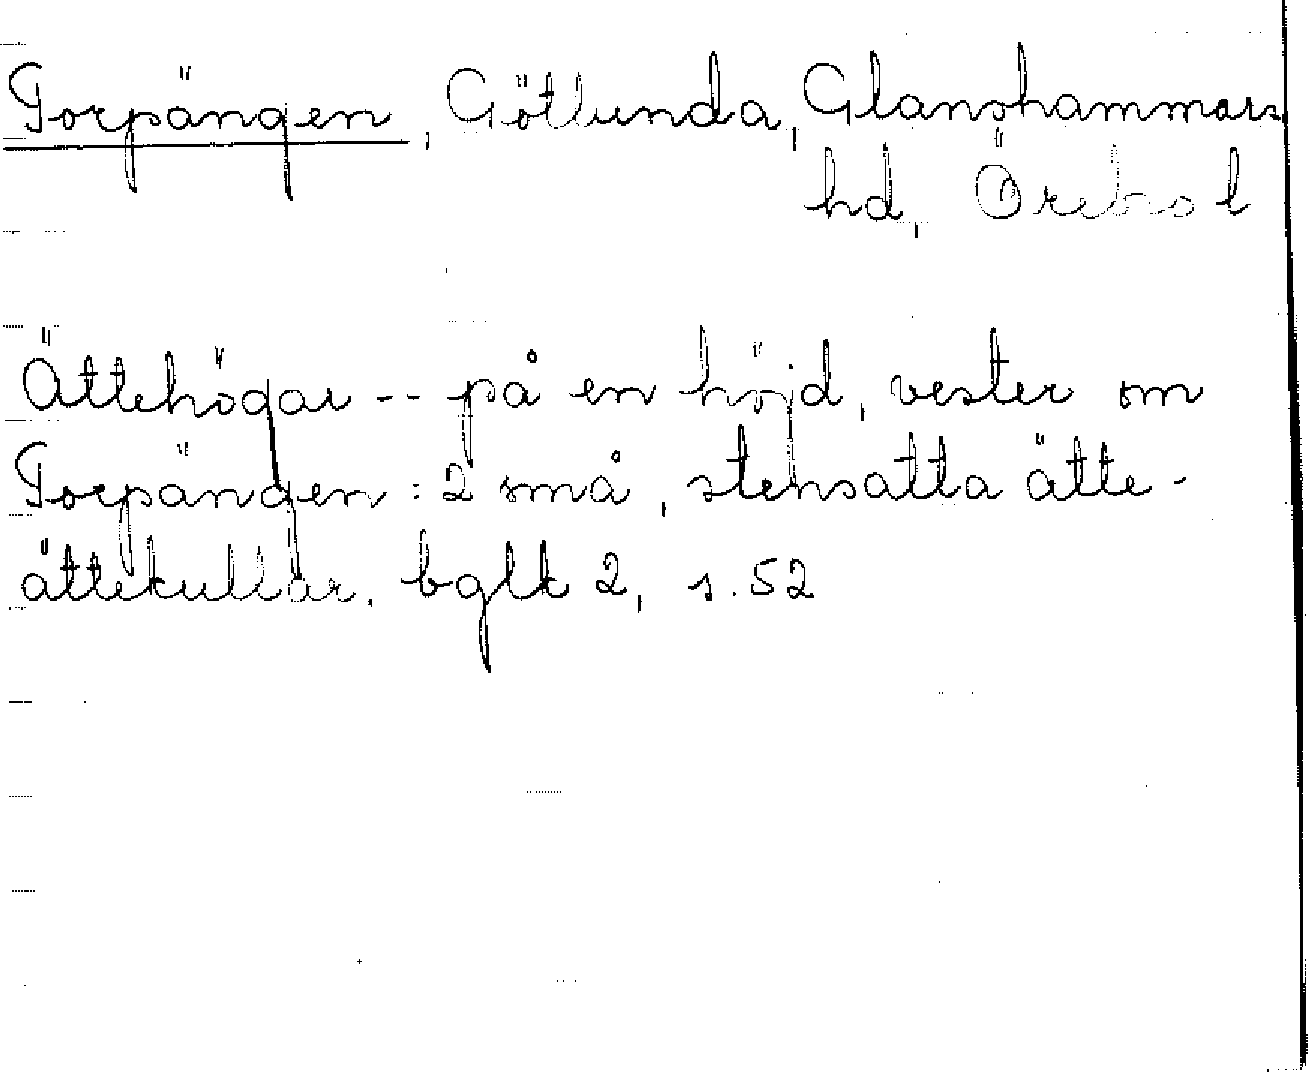 Torpängen, Götlunda, Glanshammars
hd, Örebro l
Ättehögar -- på en höjd, vester om
Torpängen: 2 små, stensatta ätte-
ättekullar. bglk 2, s. 52